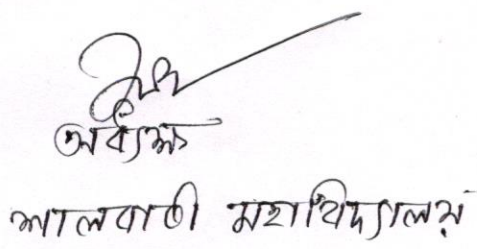 অধ্যক্ষ
শালবাড়ী মহাবিদ্যালয়